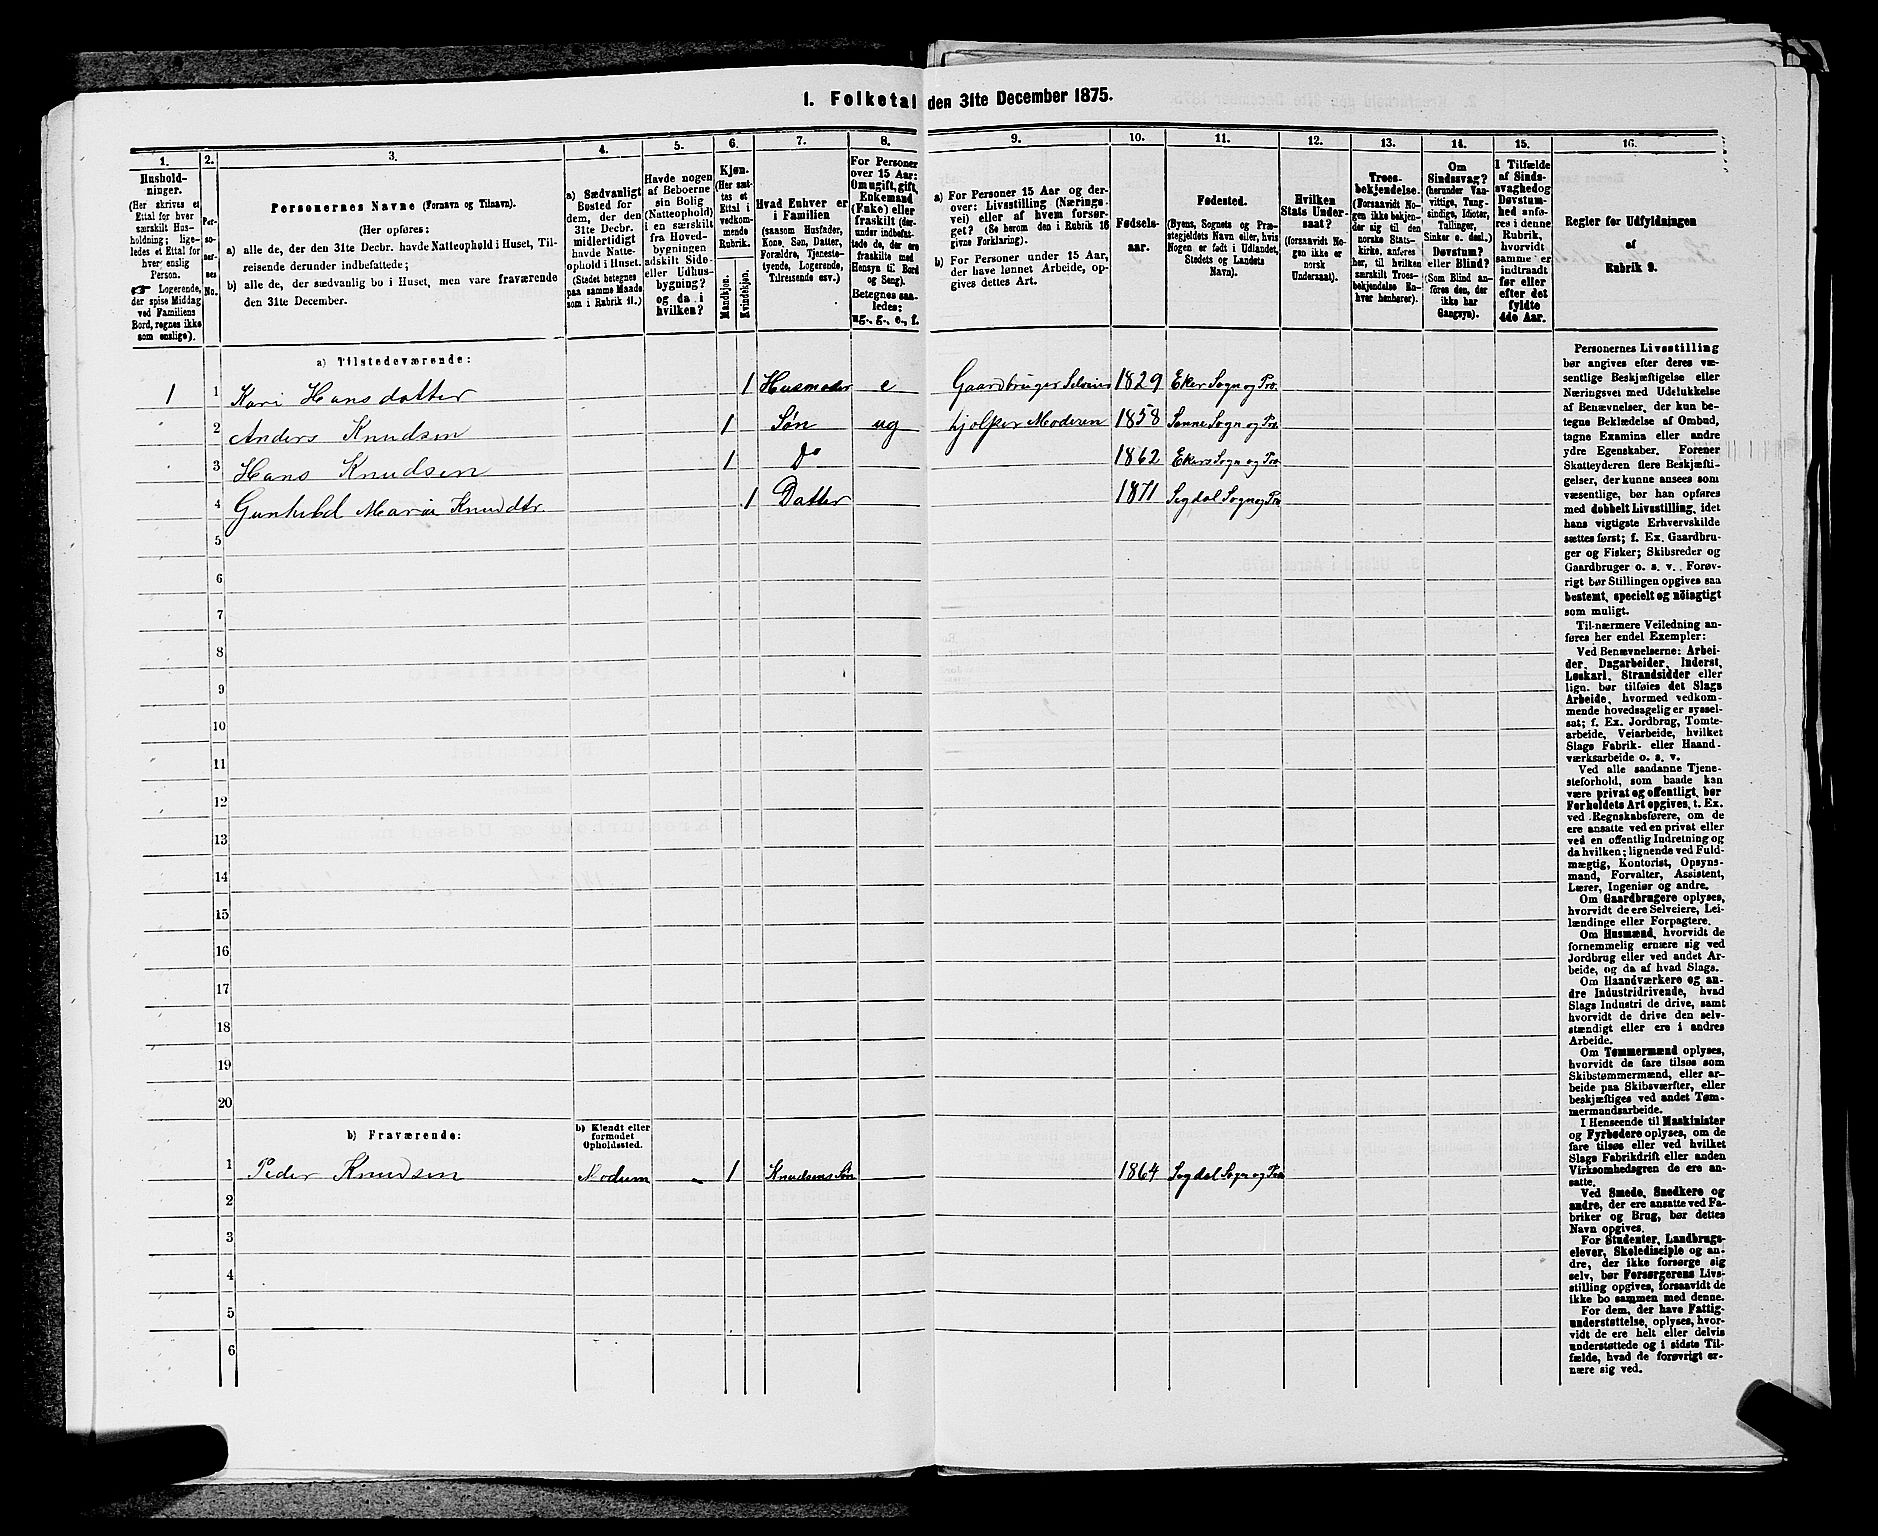 1. Folketal den 31te December 1875.
1.
2.
3.
4.
5.
6.
7.
8.
9.
10.
11.
12.
13.
14.
15.
16.
Hushold-
ninger.
(Her skrives et
Ettal for hver
særskilt Hus-
holdning; lige-
ledes et Ettal for
hver enslig
Person.
☞ Logerende,
der spise Middag
ved Familiens
Bord, regnes ikke
som enslige).
Per-
so-
ner-
nes
No.
Personernes Navne (Fornavn og Tilnavn).
(Her opføres:
a) alle de, der den 31te Decbr. havde Natteophold i Huset, Til-
reisende derunder indbefattede;
b) alle de, der sædvanlig bo i Huset, men vare fraværende
den 31te December.
a) Sædvanligt
Bosted for
dem, der den
31te Decbr.
midlertidigt
havde Natte-
ophold i Huset.
(Stedet betegnes
paa samme Maade
som i Rubrik 11.)
Havde nogen
af Beboerne
sin Bolig
(Natteophold)
i en særskilt
fra Hoved-
bygningen
adskilt Side-
eller Udhus-
bygning?
og da i
hvilken?
Kjøn.
(Her sæt-
tes et
Ettal i
vedkom-
mende
Rubrik.
Mandkjøn.
Kvindekjøn.
Hvad Enhver er
i Familien
(saasom Husfader,
Kone, Søn, Datter,
Forældre, Tjeneste-
tyende, Logerende,
Tilreisende osv.)
For Personer
over 15 Aar:
Om ugift, gift,
Enkemand
(Enke) eller
fraskilt (der-
under indbefat-
tede de, der ere
fraskilte med
Hensyn til Bord
og Seng).
Betegnes saa-
ledes:
ug., g., e., f.
a) For Personer 15 Aar og der-
over: Livsstilling (Nærings-
vei) eller af hvem forsør-
get? (Se herom den i Rubrik 16
givne Forklaring).
b) For Personer under 15 Aar,
der have lønnet Arbeide, op-
gives dettes Art.
Fødsels-
aar.
Fødested.
(Byens, Sognets og Præ-
stegjeldets Navn eller, hvis
Nogen er født i Udlandet,
Stedets og Landets
Navn).
Hvilken
Stats Under-
saat?
(forsaavidt No-
gen ikke er
norsk
Undersaat).
Troes-
bekjendelse.
(Forsaavidt No-
gen ikke bekjen-
der sig til den
norske Stats-
kirke, anføres
her, til hvilken
særskilt Troes-
bekjendelse En-
hver henhører).
Om
Sindssvag?
(herunder Van-
vittige, Tung-
sindige, Idioter,
Tallinger,
Sinker o. desl.)
Døvstum?
eller Blind?
(Som Blind an-
føres den, der
ikke har
Gangsyn).
I Tilfælde
af Sinds-
svaghed og
Døvstum-
hed anfø-
res i denne
Rubrik,
hvorvidt
samme er
indtraadt
før eller
efter det
fyldte
4de Aar.
Regler for Udfyldningen
af
Rubrik 9.
a) Tilstedeværende:
1 1 Kari Hansdatter 1 Husmoder e Gaardbruger Selveier 1829 Eker Sogn og Pr.
2 Anders Knudsen 1 Søn ug hjelper Moderen 1858 Sogn og Pr.
3 Hans Knudsen 1 Do 1862 Eker Sogn og Pr
4 Gunhild Maria Knudtr. 1 Datter 1871 Sigdal Sogn og Pr
5
6
7
8
9
10
11
12
13
14
15
16
17
18
19
20
b) Fraværende:
b) Kjendt eller
formodet
Opholdssted.
1 Peder Knudsen Modum - 1 Knudsens Søn 1864 Sigdal Sogn og Pr
2
3
4
5
6
Personernes Livsstilling
bør angives efter deres væ-
sentlige Beskjæftigelse eller
Næringsvei med Udelukkelse
af Benævnelser, der kun be-
tegne Beklædelse af Ombud,
tagne Examina eller andre
ydre Egenskaber. Forener
Skatteyderen flere Beskjæfti-
gelser, der kunne ansees som
væsentlige, bør han opføres
med dobbelt Livsstilling, idet
hans vigtigste Erhvervskilde
sættes først; f. Ex. Gaardbru-
ger og Fisker; Skibsreder og
Gaardbruger o. s. v. Forøv-
rigt bør Stillingen opgives saa
bestemt, specielt og nöiagtigt
som muligt.
Til nærmere Veiledning an-
føres her endel Exempler:
Ved Benævnelserne: Arbei-
der, Dagarbeider, Inderst,
Løskarl, Strandsidder eller
lign. bør tilføies det Slags
Arbeide, hvormed vedkom-
mende hovedsagelig er syssel-
sat; f. Ex. Jordbrug, Tomte-
arbeide, Veiarbeide, hvilket
Slags Fabrik- eller Haand-
værksarbeide o. s. v.
Ved alle saadanne Tjene-
steforhold, som baade kan
være privat og offentligt, bør
Forholdets Art opgives, t. Ex.
ved Regnskabsførere, om de
ere ansatte ved en privat eller
ved en offentlig Indretning og
da hvilken; lignende ved Fuld-
mægtig, Kontorist, Opsyns-
mand, Forvalter, Assistent,
Lærer, Ingeniør og andre.
Om Gaardbrugere oplyses,
hvorvidt de ere Selveiere, Lei-
lændinge eller Forpagtere.
Om Husmænd, hvorvidt de
fornemmelig ernære sig ved
Jordbrug eller ved andet Ar-
beide, og da af hvad Slags.
Om Haandværkere og an-
dre Industridrivende, hvad
Slags Industri de drive, samt
hvorvidt de drive den selv-
stændigt eller ere i andres
Arbeide.
Om Tømmermænd oplyses,
hvorvidt de fare tilsøs som
Skibstømmermænd, eller ar-
beide paa Skibsværfter, eller
beskjæftiges ved andet Tøm-
mermandsarbeide.
I Henseende til Maskinister
og Fyrbødere oplyses, om de
fare tilsøs eller ved hvilket
Slags Fabrikdrift eller anden
Virksomhedsgren de ere an-
satte.
Ved Smede, Snedkere og
andre, der ere ansatte ved Fa-
briker og Brug, bør dettes
Navn opgives.
For Studenter, Landbrugs-
elever, Skoledisciple og an-
dre, der ikke forsørge sig
selv, bør Forsørgerens Livs-
stilling opgives, forsaavidt de
ikke bo sammen med denne.
For dem, der have Fattig-
understøttelse, oplyses, hvor-
vidt de ere helt eller delvis
understøttede og i sidste Til-
fælde, hvad de forøvrigt er-
nære sig ved.